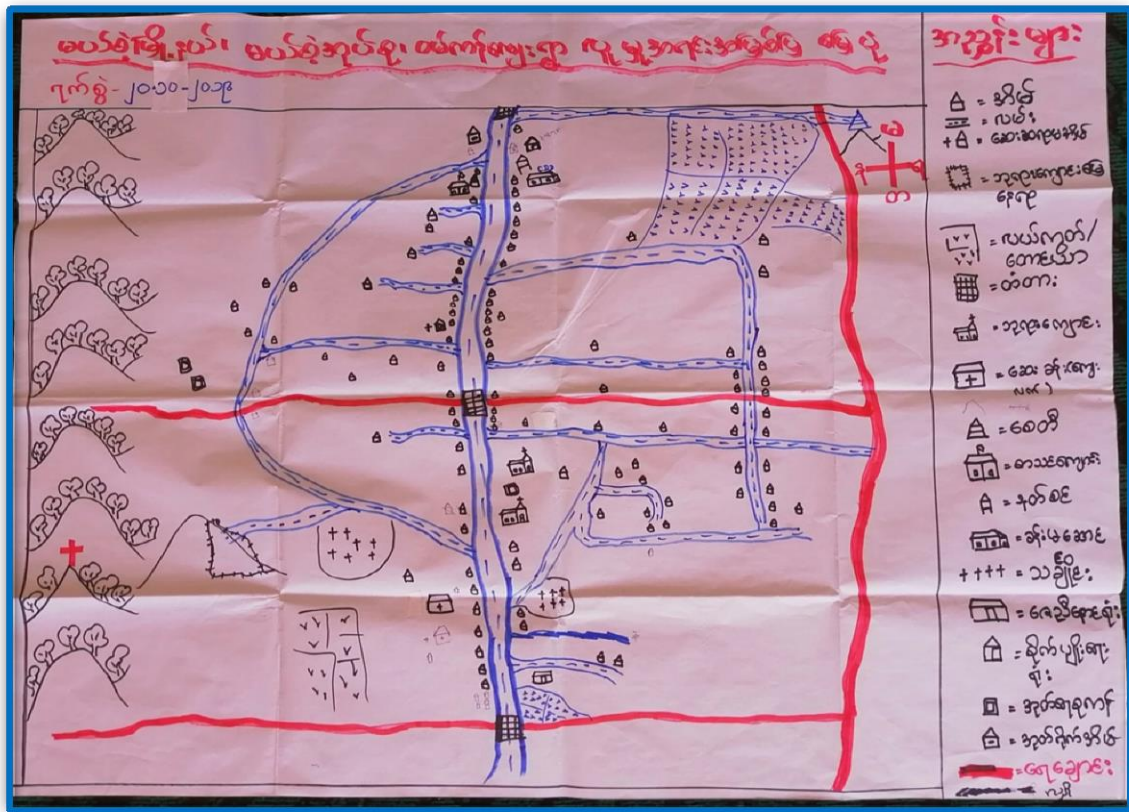 မယ်စဲ့မြို့နယ်၊ မယ်စဲ့အုပ်စု၊ ဝမ်ကန်ကျေးရွာ လူမှုအရင်းအမြစ်ပြ မြေပုံ
ရက်စွဲ-၂၀-၁၀-၂၀၁၉
အညွှန်းများ
= အိမ်
= လမ်း
= ဆေးဆရာမအိမ်
= ဘုရားကျောင်းမြေ
နေရာ
= လယ်ကွက်/
တောင်ယာ
= တံတား
= ဘုရားကျောင်း
= ဆေး ခန်း(ကျေး
လက်)
= စေတီ
= စာသင်ကျောင်း
= နတ်စင်
= ခန်းမဆောင်
++++ = သင်္ချိုင်း
= စိုက်ပျိုးရေး
ရုံး
= အုတ်ရေကန်
= အုတ်တိုက်အိမ်
= ရေချောင်း
မ
တ